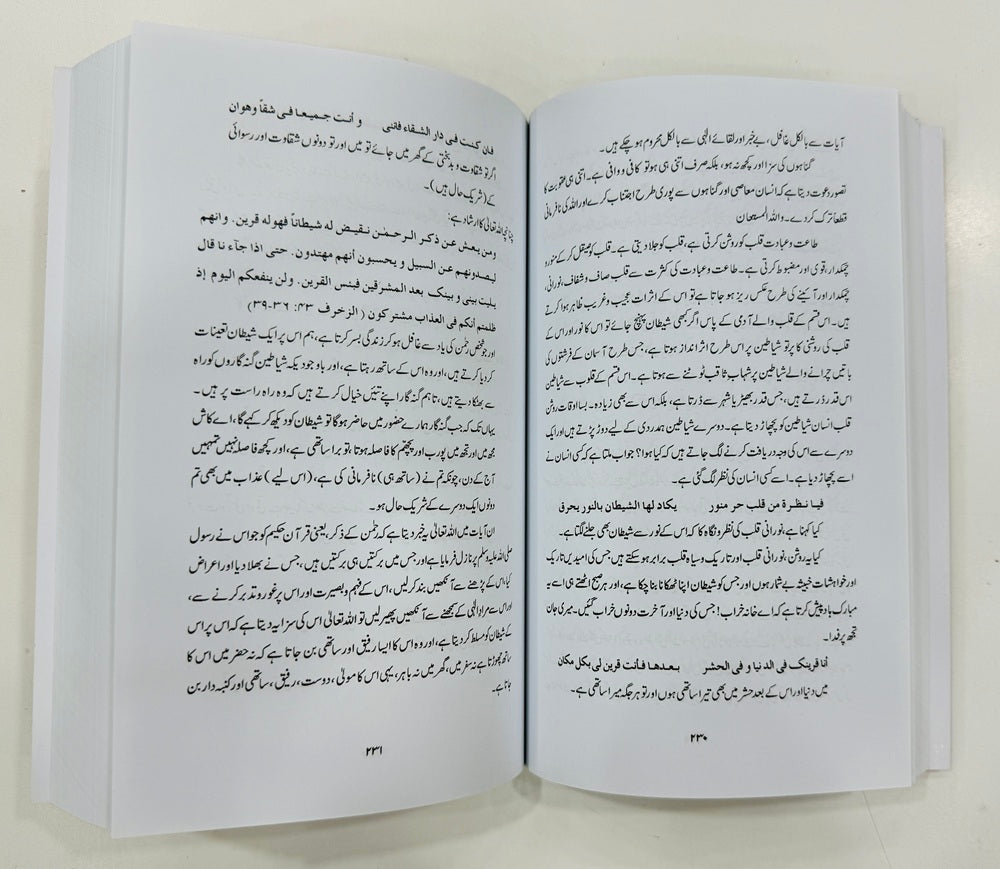 آیات سے بالکل غافل، بے خبر اور لقائے الٰہی سے بالکل محروم ہو چکے ہیں۔
گناہوں کی سزا اور کچھ نہ ہو، بلکہ صرف اتنی ہی ہو تو کافی و وافی ہے۔ اتنی ہی عقوبت کا
تصور دعوت دیتا ہے کہ انسان معاصی اور گناہوں سے پوری طرح اجتناب کرے اور اللہ کی نافرمانی
قطعاً ترک کر دے۔ واللہ المستعان
طاعت و عبادت قلب کو روشن کرتی ہے، قلب کو جلا دیتی ہے۔ قلب کو صیقل کر کے منور و
چمکدار، قوی اور مضبوط کرتی ہے۔ طاعت و عبادت کی کثرت سے قلب صاف و شفاف، نورانی،
چمکدار اور آئینے کی طرح عکس ریز ہو جاتا ہے تو اس کے اثرات عجیب و غریب ظاہر ہوا کرتے
ہیں۔ اس قسم کے قلب والے آدمی کے پاس اگر بھی شیطان پہنچ جائے تو اس کا نور اور اس کے
قلب کی روشنی کا پرتو شیاطین پر اس طرح اثر انداز ہوتا ہے، جس طرح آسمان کے فرشتوں کی
باتیں چرانے والے شیاطین پر شہاب ثاقب ٹوٹنے سے ہوتا ہے۔ اس قسم کے قلوب سے شیاطین
اس قدر ڈرتے ہیں، جس قدر بھیڑیا شہر سے ڈرتا ہے، بلکہ اس سے بھی زیادہ۔ بسا اوقات روشن
قلب انسان شیاطین کو پچھاڑ دیتا ہے۔ دوسرے شیاطین ہمدردی کے لیے دوڑ پڑتے ہیں اور ایک
دوسرے سے اس کی وجہ دریافت کرنے لگ جاتے ہیں کہ کیا ہوا؟ جواب ملتا ہے کسی انسان نے
اسے پچھاڑ دیا ہے۔ اسے کسی انسان کی نظر لگ گئی ہے۔
فیا نظرة من قلب حر منور یکاد لها الشیطان بالنور یحرق
کیا کہنا ہے، نورانی قلب کی نظر و نگاہ کا کہ اس کے نور سے شیطان بھی جلنے لگتا ہے۔
کیا یہ روشن، نورانی قلب اور تاریک و سیاہ قلب برابر ہو سکتے ہیں، جس کی امیدیں تاریک
اور خواہشات خبیثہ بے شمار ہوں اور جس کو شیطان اپنا ٹھکانا بنا چکا ہے، اور ہر صبح اٹھتے ہی اسے یہ
مبارک باد پیش کرتا ہے کہ اے خانہ خراب! جس کی دنیا اور آخرت دونوں خراب گئیں۔ میری جان
تجھ پر فدا۔
أنا قرینک فی الدنیا و فی الحشر بعدها فأنت قرین لی بکل مکان
میں دنیا اور اس کے بعد حشر میں بھی تیرا ساتھی ہوں اور تو ہر جگہ میرا ساتھی ہے۔
۲۳۰
فإن کنت فی دار الشقاء فإننی و أنت جمیعا فی شقاً وهوان
اگر تو شقاوت و بدبختی کے گھر میں جائے تو میں اور تو دونوں شقاوت اور رسوائی
کے (شریک حال ہیں)۔
چنانچہ اللہ تعالیٰ کا ارشاد ہے:
ومن یعش عن ذکر الرحمٰن نقیض له شیطاناً فهو له قرین. وانهم
لیصدونهم عن السبیل و یحسبون أنهم مهتدون. حتی اذا جآء نا قال
یلیت بینی و بینک بعد المشرقین فبئس القرین. ولن ینفعکم الیوم إذ
ظلمتم أنکم فی العذاب مشترکون (الزخرف ۴۳: ۳۶-۳۹)
اور جو شخص رحمٰن کی یاد سے غافل ہو کر زندگی بسر کرتا ہے، ہم اس پر ایک شیطان تعینات
کر دیا کرتے ہیں، اور وہ اس کے ساتھ رہتا ہے، اور باوجودیکہ شیاطین گنہ گاروں کو راہ
سے بھٹکا دیتے ہیں، تاہم گنہ گار اپنے تئیں خیال کرتے ہیں کہ وہ راہ راست پر ہیں۔
یہاں تک کہ جب گنہ گار ہمارے حضور میں حاضر ہوگا تو شیطان کو دیکھ کر کہے گا، اے کاش
مجھ میں اور تجھ میں پورب اور پچھم کا فاصلہ ہوتا، تو برا ساتھی ہے، اور کچھ فاصلہ نہیں تمہیں
آج کے دن، چونکہ تم نے (ساتھ ہی) نافرمانی کی ہے، (اس لیے) عذاب میں بھی تم
دونوں ایک دوسرے کے شریک حال ہو۔
ان آیات میں اللہ تعالیٰ یہ خبر دیتا ہے کہ رحمٰن کے ذکر، یعنی قرآن حکیم کو جو اس نے رسول
صلی اللہ علیہ وسلم پر نازل فرمایا ہے اور جس میں برکتیں ہی برکتیں ہیں، جس نے بھلا دیا اور اعراض
کیا، اس کے پڑھنے سے آنکھیں بند کر لیں، اس کے فہم و بصیرت اور اس پر غور و تدبر کرنے سے،
اور اس سے مراد الٰہی کے سمجھنے سے آنکھیں پھیر لیں تو اللہ تعالیٰ اس کی سزا یہ دیتا ہے کہ اس پر اس
کے شیطان کو مسلط کر دیتا ہے، اور وہ اس کا ایسا رفیق اور ساتھی بن جاتا ہے کہ نہ حضر میں اس کا
ساتھ چھوڑتا ہے نہ سفر میں، گھر میں نہ باہر، یہی اس کا مولیٰ، دوست، رفیق، ساتھی اور کنبہ دار بن
جاتا ہے۔
۲۳۱